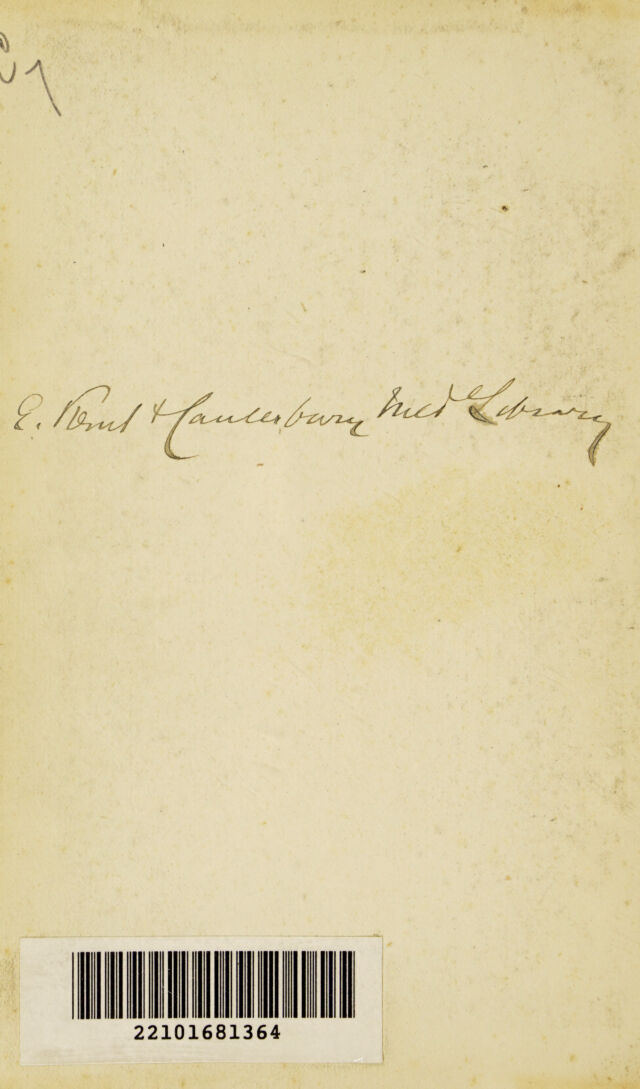 E. Kent & Canterbury Med Library
22101681364